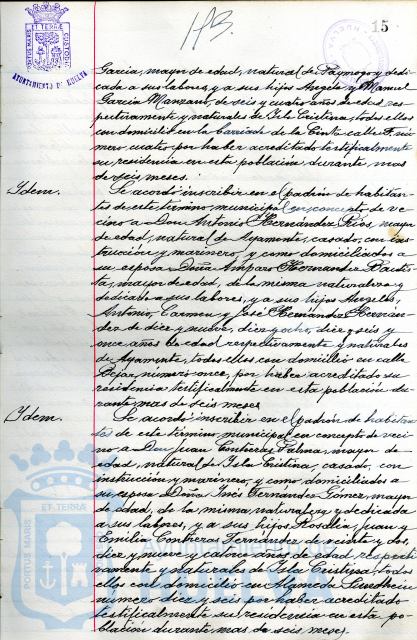 15
AYUNTAMIENTO DE HUELVA
PORTUS MARIS ET TERRÆ CUSTODIA
García, mayor de edad, natural de Paymogo y dedi-
cada a sus labores, y a sus hijos Angela y Manuel
García Manzano, de seis y cuatro años de edad res-
pectivamente y naturales de Isla Cristina, todos ellos
con domicilio en la barriada de la Cinta calle F. nú-
mero cuatro por haber acreditado testificalmente
su residencia en esta población durante mas
de seis meses.
Idem. Se acordó inscribir en el padrón de habitan-
tes de este término municipal en concepto de ve-
cino a Don Antonio Hernández Ríos, mayor
de edad, natural de Ayamonte, casado, con ins-
trucción y marinero, y como domiciliados a
su esposa Doña Amparo Hernandez Bautis-
ta, mayor de edad, de la misma naturaleza y
dedicada a sus labores, y a sus hijos Angeles,
Antonio, Carmen y José Hernández Hernán-
dez de diez y nueve, diez y ocho, diez y seis y
once años de edad respectivamente y naturales
de Ayamonte, todos ellos con domicilio en calle
Bejar, número once, por haber acreditado su
residencia testificalmente en esta población du-
rante mas de seis meses.
Idem. Se acordó inscribir en el padrón de habitan-
tes de este término municipal en concepto de veci-
no a Don Juan Contreras Palma, mayor de
edad, natural de Isla Cristina, casado, con
instrucción y marinero, y como domiciliados a
su esposa Doña Inés Fernandez Gómez, mayor
de edad, de la misma naturaleza y dedicada
a sus labores, y a sus hijos Rosalía, Juan y
Emilia Contreras Fernández de veinte y dos,
diez y nueve y catorce años de edad respecti-
vamente y naturales de Isla Cristina, todos
ellos con domicilio en Alameda Sundheim
número diez y seis por haber acreditado
testificalmente su residencia en esta po-
blación durante mas de seis meses.
PORTUS MARIS ET TERRÆ
Ayuntamiento de